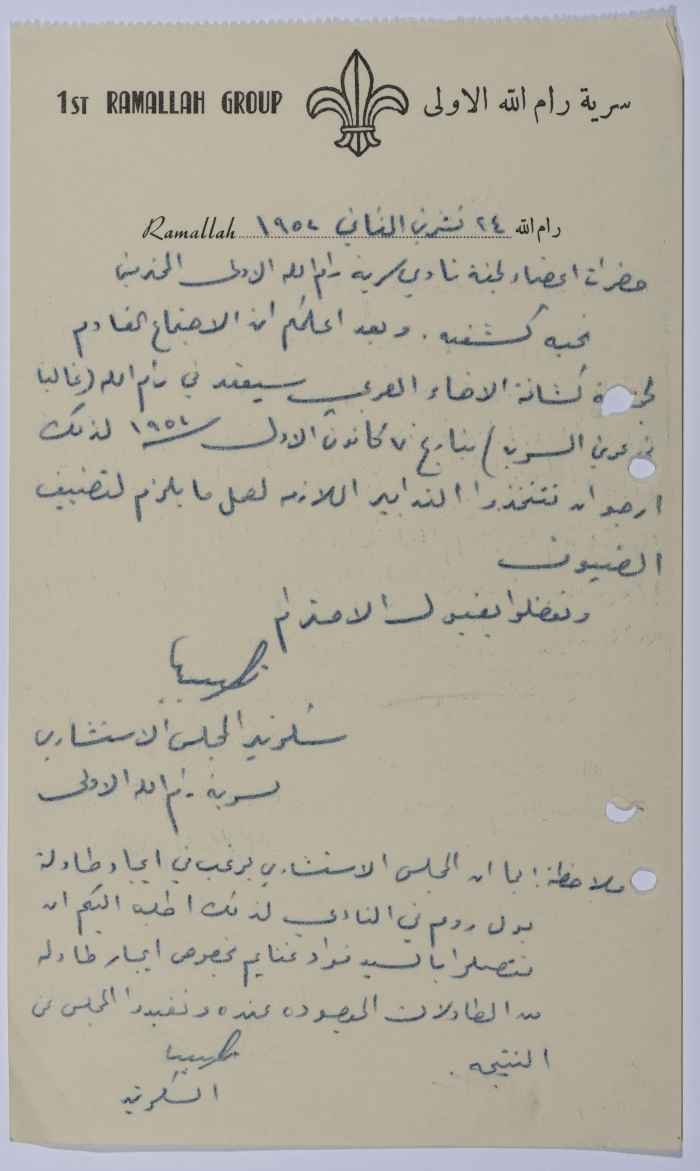 1ST RAMALLAH GROUP سرية رام الله الاولى
Ramallah ٢٤ تشرين الثاني ١٩٥٤ رام الله
حضرات اعضاء لجنة نادي سرية رام الله الاولى المحترمين
تحيه كشفيه . وبعد اعلمكم ان الاجتماع القادم
كشافة الاضاء العربي سيعقد في رام الله (غالبا
في عرين السريه) بتاريخ ٧ كانون الاول ١٩٥٤ لذلك
ارجو ان تتخذوا التدابير اللازمه لعمل ما يلزم لتضييف
الضيوف
وتفضلوا بقبول الاحترام
سكرتير المجلس الاستشاري
لسرية رام الله الاولى
ملاحظة : بما ان المجلس الاستشاري يرغب في ايجاد طاولة
بول روم في النادي لذلك اطلب اليكم ان
تتصلوا بالسيد فؤاد غنايم بخصوص ايجار طاوله
من الطاولات الموجوده عنده وتفيدوا المجلس عن
النتيجه .
السكرتير